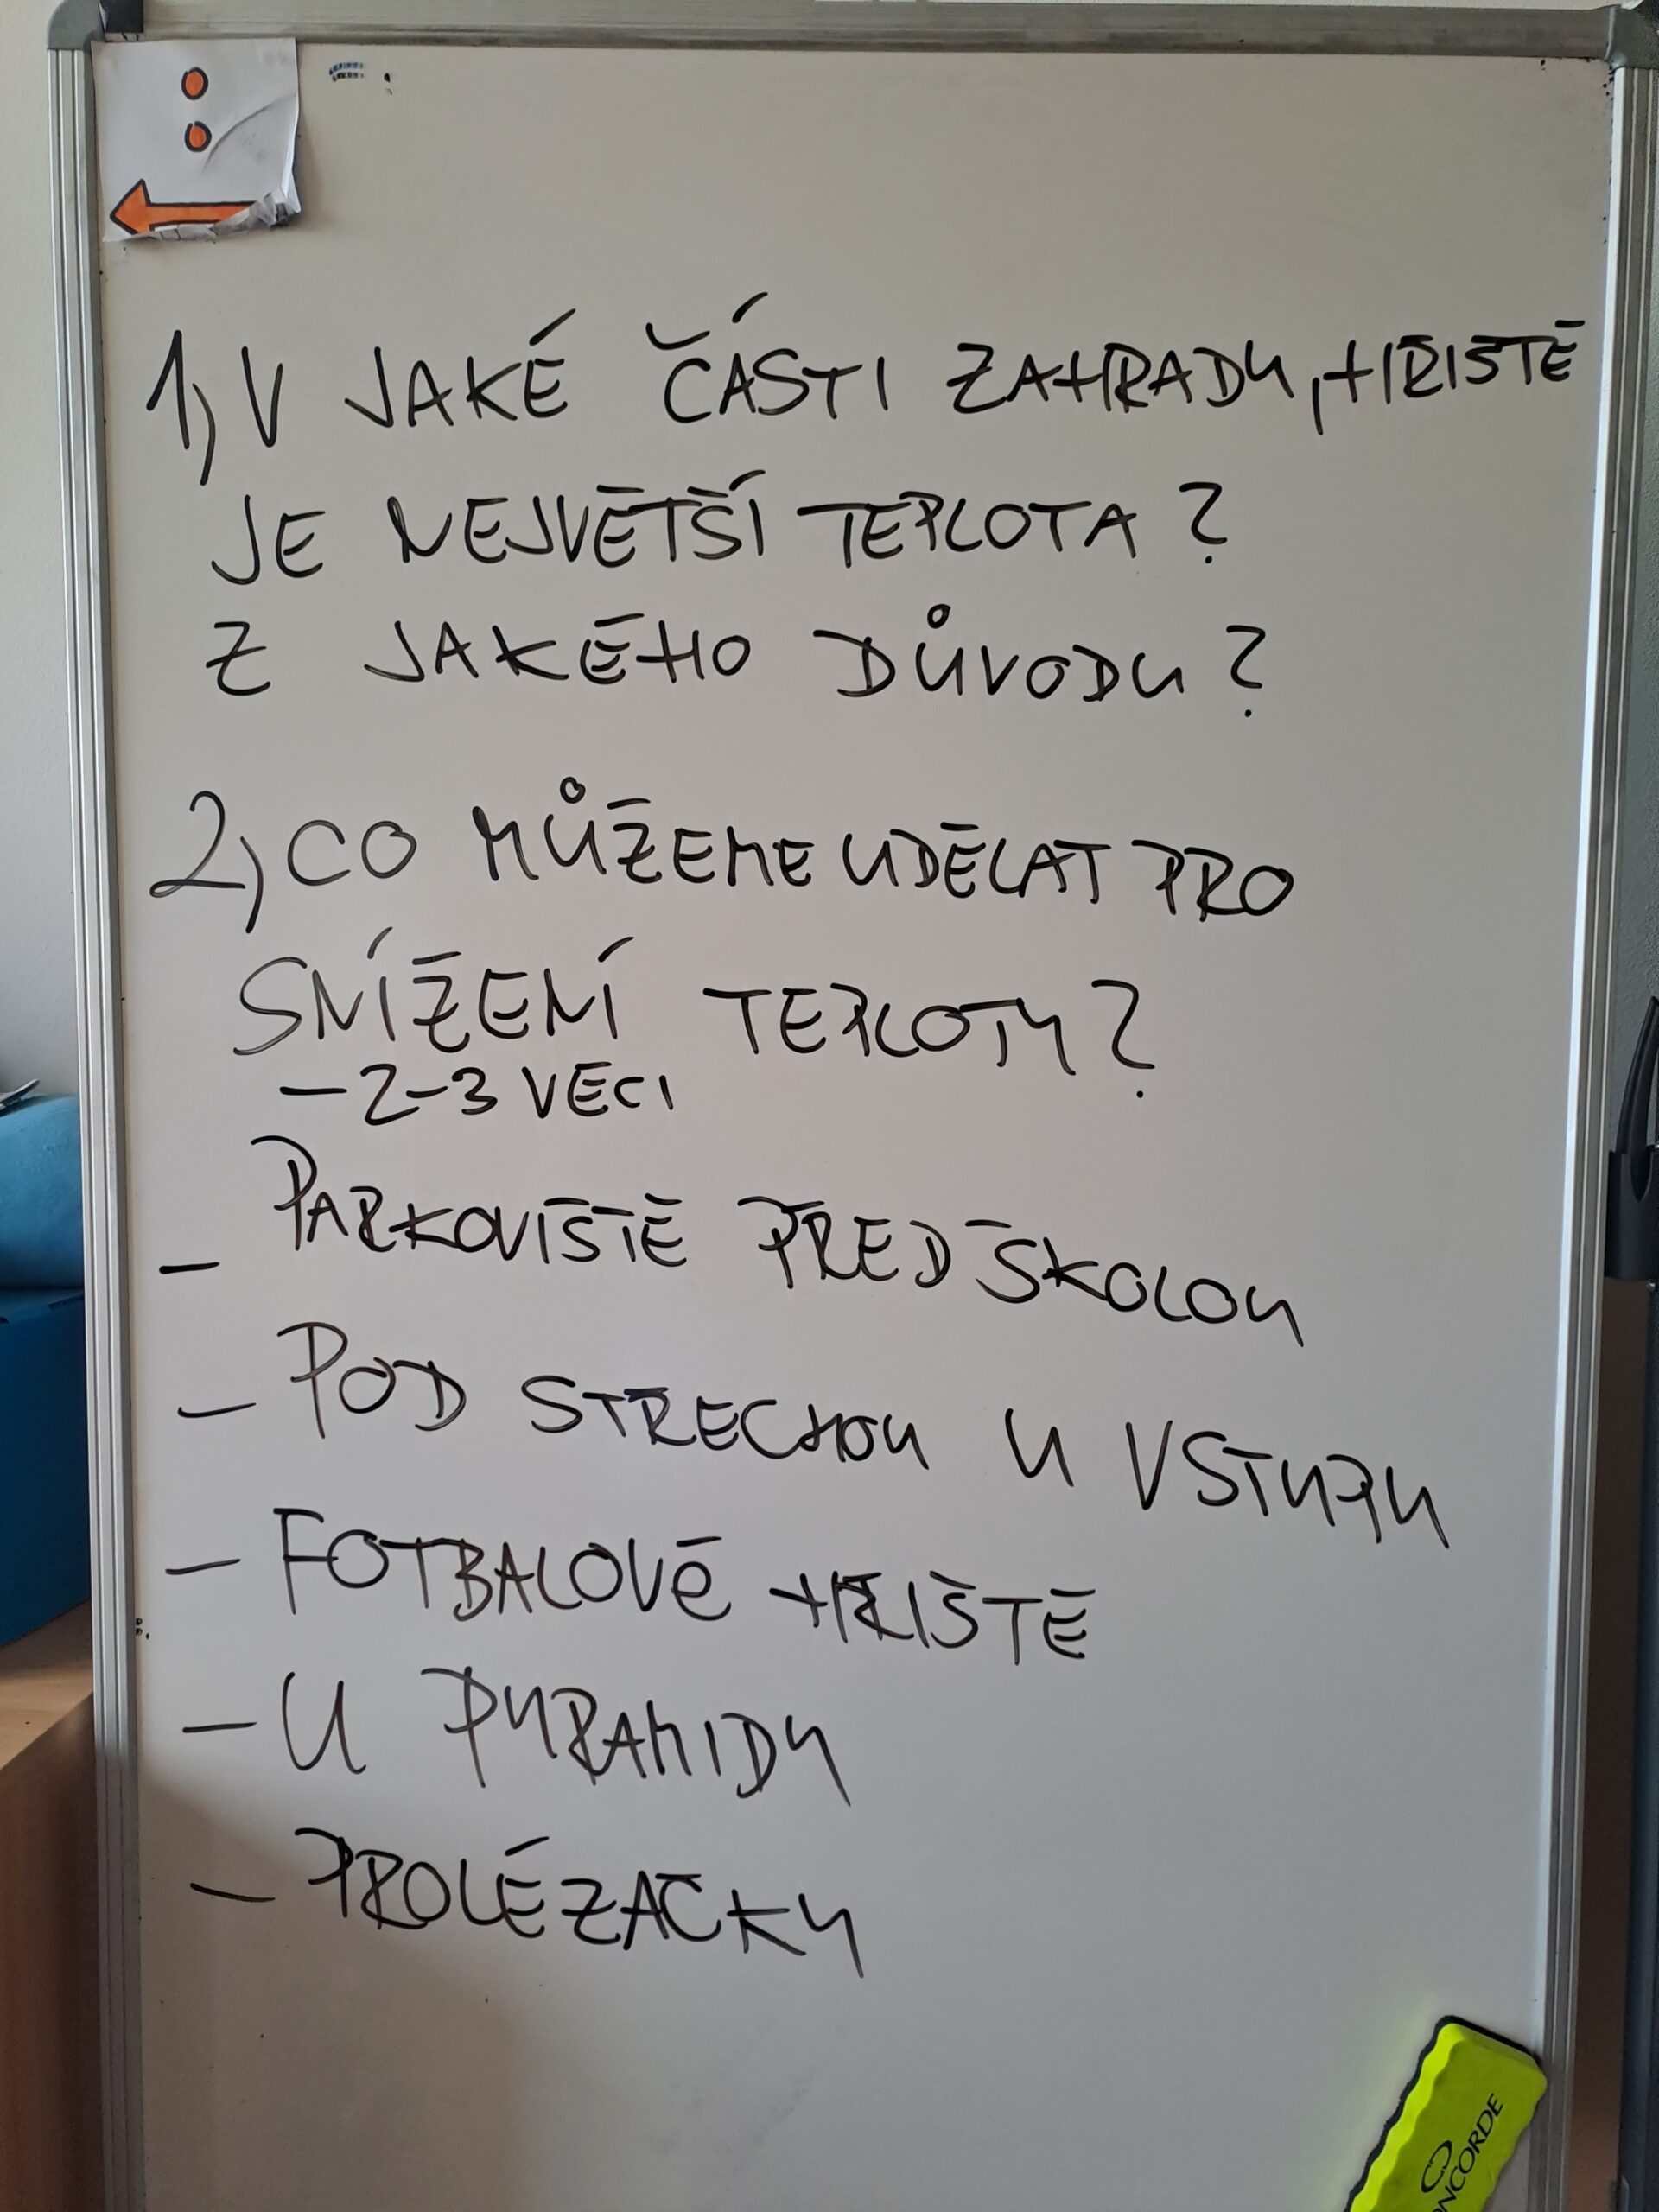 1, V JAKÉ ČÁSTI ZAHRADY, HŘIŠTĚ
JE NEJVĚTŠÍ TEPLOTA?
Z JAKÉHO DŮVODU?
2, CO MŮŽEME UDĚLAT PRO
SNÍŽENÍ TEPLOTY?
- 2-3 VĚCI
- PARKOVIŠTĚ PŘED ŠKOLOU
- POD STŘECHOU U VSTUPU
- FOTBALOVÉ HŘIŠTĚ
- U PYRAMIDY
- PROLÉZAČKY
CONCORDE